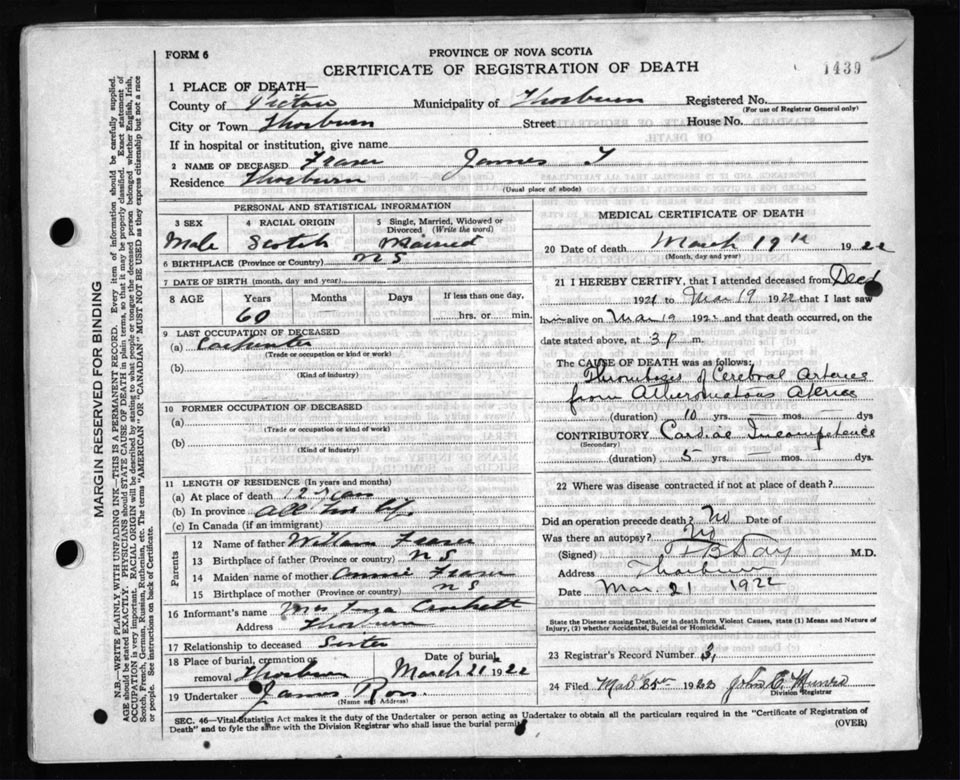 FORM 6
PROVINCE OF NOVA SCOTIA
CERTIFICATE OF REGISTRATION OF DEATH
1439
1 PLACE OF DEATH—
County of Pictou Municipality of Thorburn Registered No.
(For use of Registrar General only)
City or Town Thorburn Street House No.
If in hospital or institution, give name
2 NAME OF DECEASED Fraser James
Residence Thorburn
(Usual place of abode)
PERSONAL AND STATISTICAL INFORMATION
3 SEX 4 RACIAL ORIGIN 5 Single, Married, Widowed or Divorced (Write the word)
Male Scotch Married
6 BIRTHPLACE (Province or Country) N S
7 DATE OF BIRTH (month, day and year)
8 AGE Years Months Days If less than one day,
60 hrs. or min.
9 LAST OCCUPATION OF DECEASED
(a) Carpenter
(Trade or occupation or kind of work)
(b)
(Kind of industry)
10 FORMER OCCUPATION OF DECEASED
(a)
(Trade or occupation or kind of work)
(b)
(Kind of industry)
11 LENGTH OF RESIDENCE (In years and months)
(a) At place of death 12 years
(b) In province All his life
(c) In Canada (if an immigrant)
Parents
12 Name of father William Fraser
13 Birthplace of father (Province or country) N S
14 Maiden name of mother Annie Fraser
15 Birthplace of mother (Province or country) N S
16 Informant's name Mrs Crockett
Address Thorburn
17 Relationship to deceased Sister
18 Place of burial, cremation or removal Thorburn Date of burial March 21 1922
19 Undertaker James Ross
(Name and Address)
MEDICAL CERTIFICATE OF DEATH
20 Date of death March 19th 1922
(Month, day and year)
21 I HEREBY CERTIFY, that I attended deceased from Dec
1921 to Mar 19 1922 that I last saw
him alive on Mar 19 1922 and that death occurred, on
date stated above, at 3 p m.
The CAUSE OF DEATH was as follows:
Thrombosis of Cerebral Arteries
from Atheromatous
(duration) 10 yrs. — mos. — dys
CONTRIBUTORY Cardiac Incompetence
(Secondary)
(duration) 5 yrs. — mos. dys.
22 Where was disease contracted if not at place of death?
Did an operation precede death? No Date of
Was there an autopsy? No
(Signed) Day M.D.
Address Thorburn
Date Mar. 21 1922
State the Disease causing Death, or in death from Violent Causes, state (1) Means and Nature of
Injury, (2) whether Accidental, Suicidal or Homicidal.
23 Registrar's Record Number 3
24 Filed 25 192 John Munro
Division Registrar
SEC. 46—Vital Statistics Act makes it the duty of the Undertaker or person acting as Undertaker to obtain all the particulars required in the "Certificate of Registration of
Death" and to fyle the same with the Division Registrar who shall issue the burial permit.
(OVER)
MARGIN RESERVED FOR BINDING
N.B.—WRITE PLAINLY WITH UNFADING INK—THIS IS A PERMANENT RECORD. Every item of information should be carefully supplied.
AGE should be stated EXACTLY. PHYSICIANS should STATE CAUSE OF DEATH in plain terms, so that it may be properly classified. Exact statement of
OCCUPATION is very important. RACIAL ORIGIN will be described by stating to what people or tongue the deceased person belonged whether English, Irish,
Scotch, French, German, Russian, Ruthenian, etc. The terms "AMERICAN" OR "CANADIAN" MUST NOT BE USED as they express citizenship but not a race
or people. See instructions on back of Certificate.